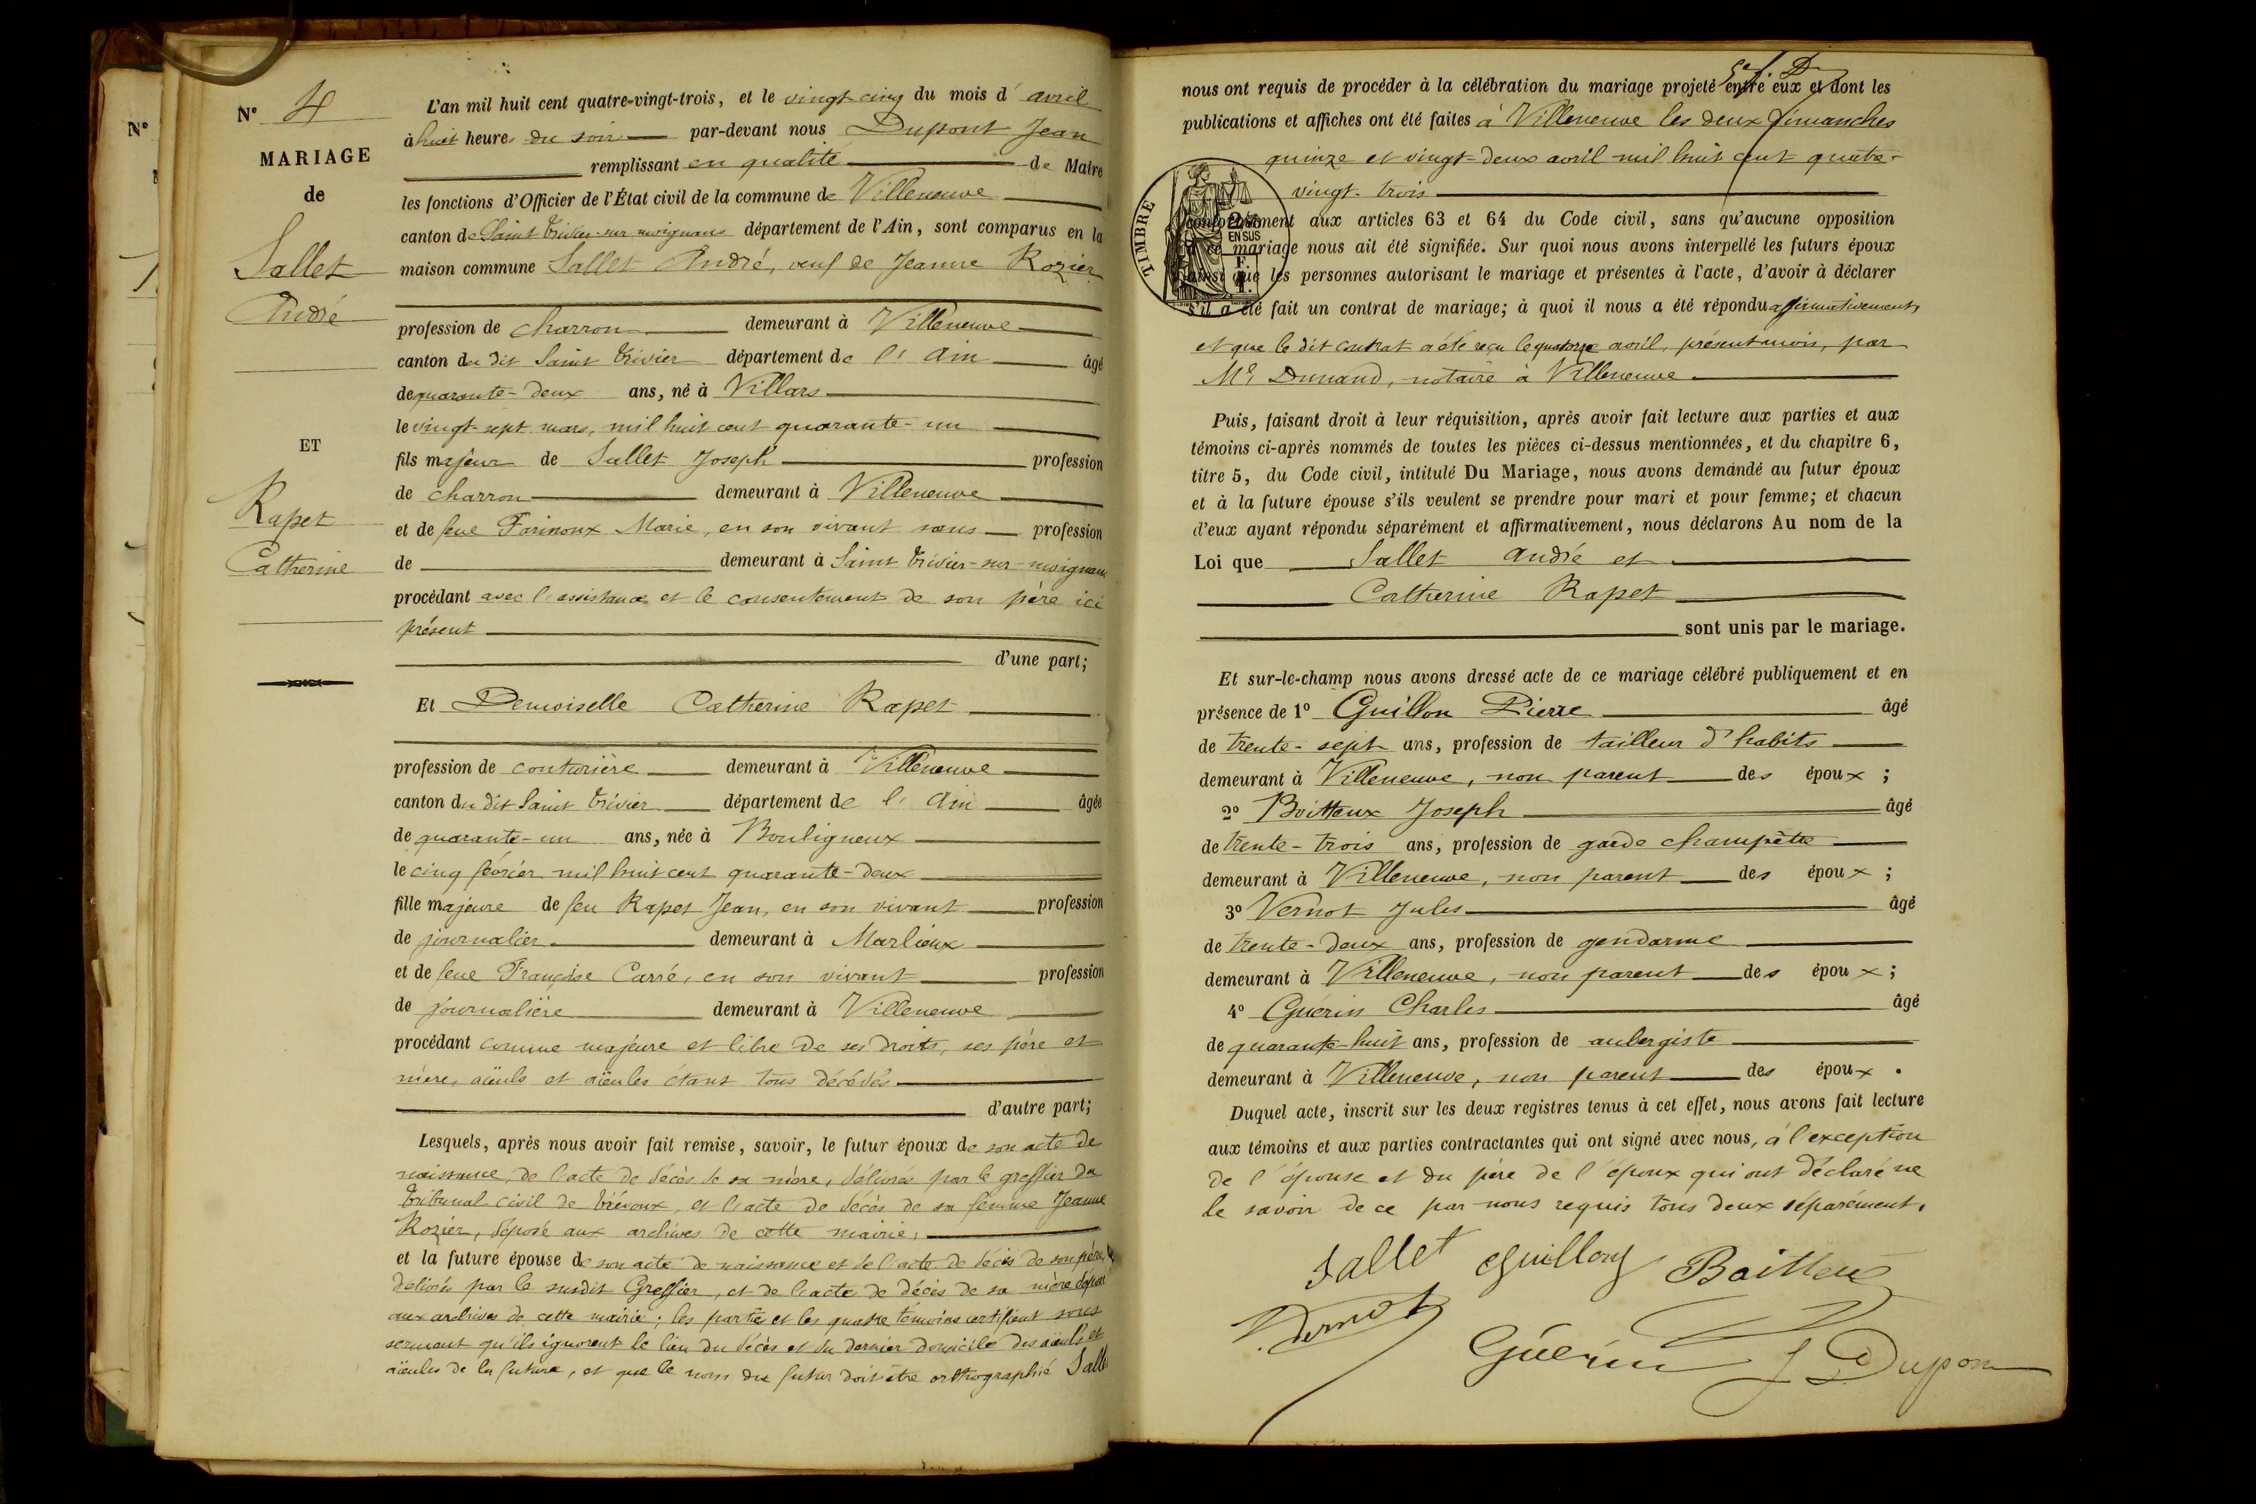 N°
N° 4
MARIAGE
de
Sallet
André
ET
Rapet
Catherine
L'an mil huit cent quatre-vingt-trois, et le vingt-cinq du mois d' avril
à huit heures du soir par-devant nous Dupont Jean
remplissant en qualité de Maire
les fonctions d'Officier de l'État civil de la commune de Villeneuve
canton de Saint Trivier-sur-moignans département de l'Ain, sont comparus en la
maison commune Sallet André, veuf de Jeanne Rozier
profession de charron demeurant à Villeneuve
canton du dit Saint Trivier département de l' Ain âgé
de quarante-deux ans, né à Villars
le vingt-sept mars, mil huit cent quarante-un
fils majeur de Sallet Joseph profession
de charron demeurant à Villeneuve
et de feue Farinoux Marie, en son vivant sans profession
de demeurant à Saint Trivier-sur-moignans
procédant avec l'assistance et le consentement de son père ici
présent
d'une part;
Et Demoiselle Catherine Rapet
profession de couturière demeurant à Villeneuve
canton du dit Saint Trivier département de l' Ain âgée
de quarante-un ans, née à Bouligneux
le cinq février mil huit cent quarante-deux
fille majeure de feu Rapet Jean, en son vivant profession
de journalier demeurant à Marlieux
et de feue Françoise Carré, en son vivant profession
de journalière demeurant à Villeneuve
procédant comme majeure et libre de ses droits, ses père et
mère, aïeuls et aïeules étant tous décédés
d'autre part;
Lesquels, après nous avoir fait remise, savoir, le futur époux de son acte de
naissance, de l'acte de décès de sa mère, délivrés par le greffier du
Tribunal civil de Trévoux, et l'acte de décès de sa femme Jeanne
Rozier, déposé aux archives de cette mairie,
et la future épouse de son acte de naissance et de l'acte de décès de son père,
délivrés par le susdit Greffier, et de l'acte de décès de sa mère déposé
aux archives de cette mairie; les parties et les quatre témoins certifient sous
serment qu'ils ignorent le lieu du décès et du dernier domicile des aïeuls et
aïeules de la future, et que le nom du futur doit être orthographié Sallet
nous ont requis de procéder à la célébration du mariage projeté entre eux et dont les
publications et affiches ont été faites à Villeneuve les deux dimanches
quinze et vingt-deux avril mil huit cent quatre-
vingt-trois
TIMBRE
2/10
EN SUS
conformément aux articles 63 et 64 du Code civil, sans qu'aucune opposition
à ce mariage nous ait été signifiée. Sur quoi nous avons interpellé les futurs époux
ainsi que les personnes autorisant le mariage et présentes à l'acte, d'avoir à déclarer
s'il a été fait un contrat de mariage; à quoi il nous a été répondu affirmativement,
et que le dit contrat a été reçu le quatorze avril, présent mois, par
Me Dunand, notaire à Villeneuve
Puis, faisant droit à leur réquisition, après avoir fait lecture aux parties et aux
témoins ci-après nommés de toutes les pièces ci-dessus mentionnées, et du chapitre 6,
titre 5, du Code civil, intitulé Du Mariage, nous avons demandé au futur époux
et à la future épouse s'ils veulent se prendre pour mari et pour femme; et chacun
d'eux ayant répondu séparément et affirmativement, nous déclarons Au nom de la
Loi que Sallet André et
Catherine Rapet
sont unis par le mariage.
Et sur-le-champ nous avons dressé acte de ce mariage célébré publiquement et en
présence de 1° Guillon Pierre âgé
de trente-sept ans, profession de tailleur d'habits
demeurant à Villeneuve, non parent des époux ;
2° Boitteux Joseph âgé
de trente-trois ans, profession de garde champêtre
demeurant à Villeneuve, non parent des époux ;
3° Vernot Jules âgé
de trente-deux ans, profession de gendarme
demeurant à Villeneuve, non parent des époux ;
4° Guérin Charles âgé
de quarante-huit ans, profession de aubergiste
demeurant à Villeneuve, non parent des époux .
Duquel acte, inscrit sur les deux registres tenus à cet effet, nous avons fait lecture
aux témoins et aux parties contractantes qui ont signé avec nous, à l'exception
de l'épouse et du père de l'époux qui ont déclaré ne
le savoir de ce par nous requis tous deux séparément.
Sallet Guillon Boitteux
Vernot
Guérin J Dupont